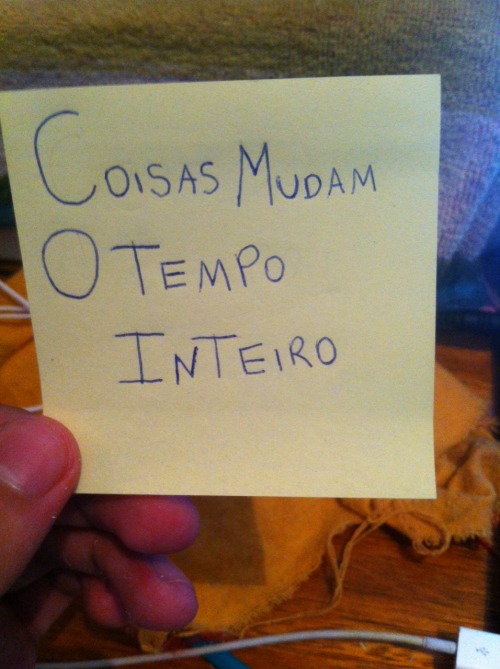 COISAS MUDAM
O TEMPO
INTEIRO